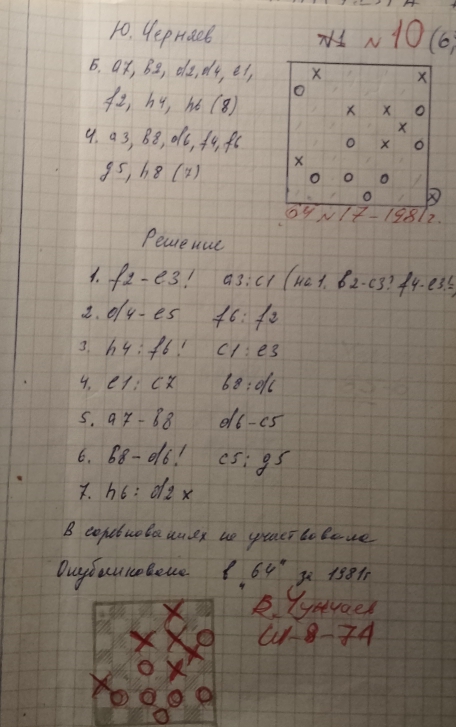 Ю. Черняев
№1 №10 (6
Б. a7, b2, d2, d4, e1,
f2, h4, h6 (8)
Ч. a3, b8, d6, f4, f6
g5, h8 (7)
64 №17-1981г.
Решение
1. f2-e3! a3:c1 (на 1. b2-c3? f4-e3!
2. d4-e5 f6:f2
3. h4:f6! c1:e3
4. e1:c7 b8:d6
5. a7-b8 d6-c5
6. b8-d6! c5:g5
7. h6:d2 x
В соревнованиях не участвовала
Опубликована в „64" за 1981г
В. Чунчаев